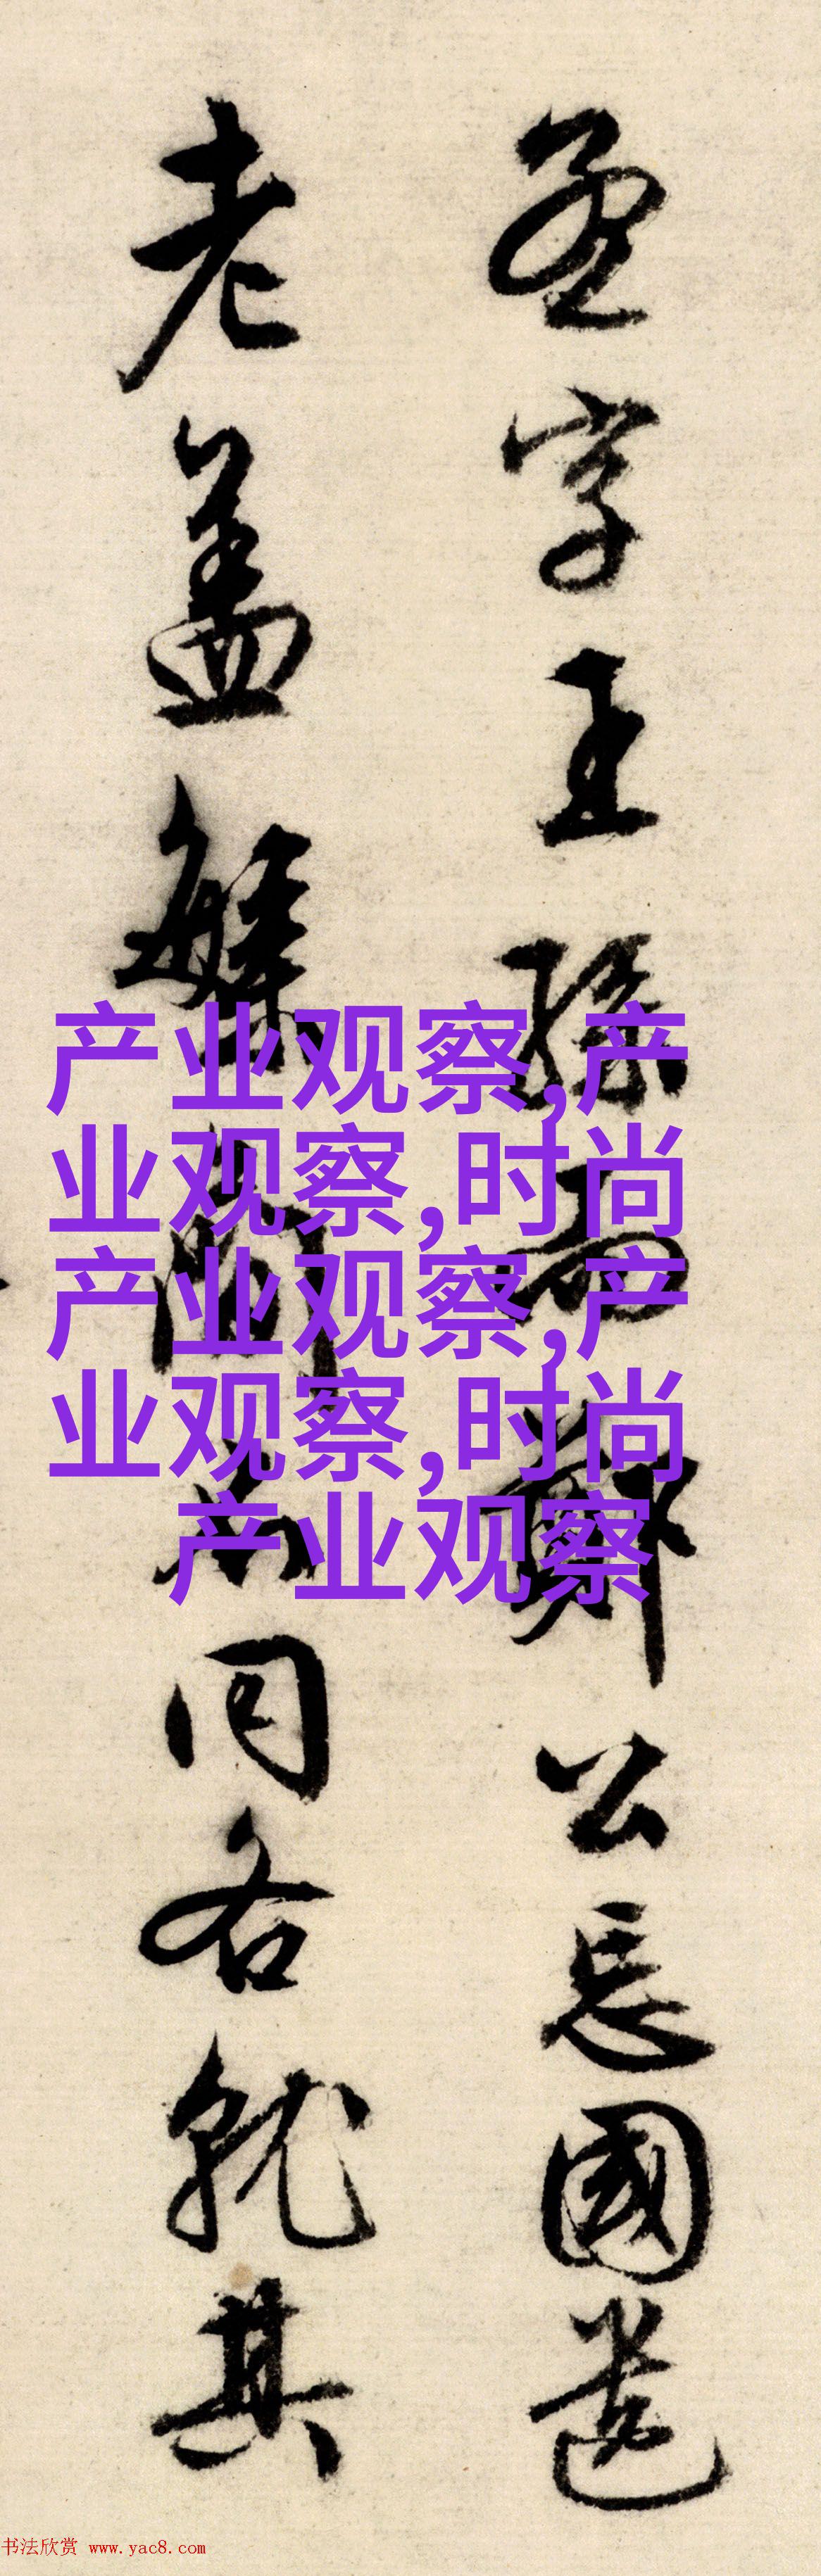 孟字王孫而鄭公忘國遺
老盖
同各就其
产业观察,产
业观察,时尚
产业观察,产
业观察,时尚
产业观察
书法欣赏 www.yac8.com